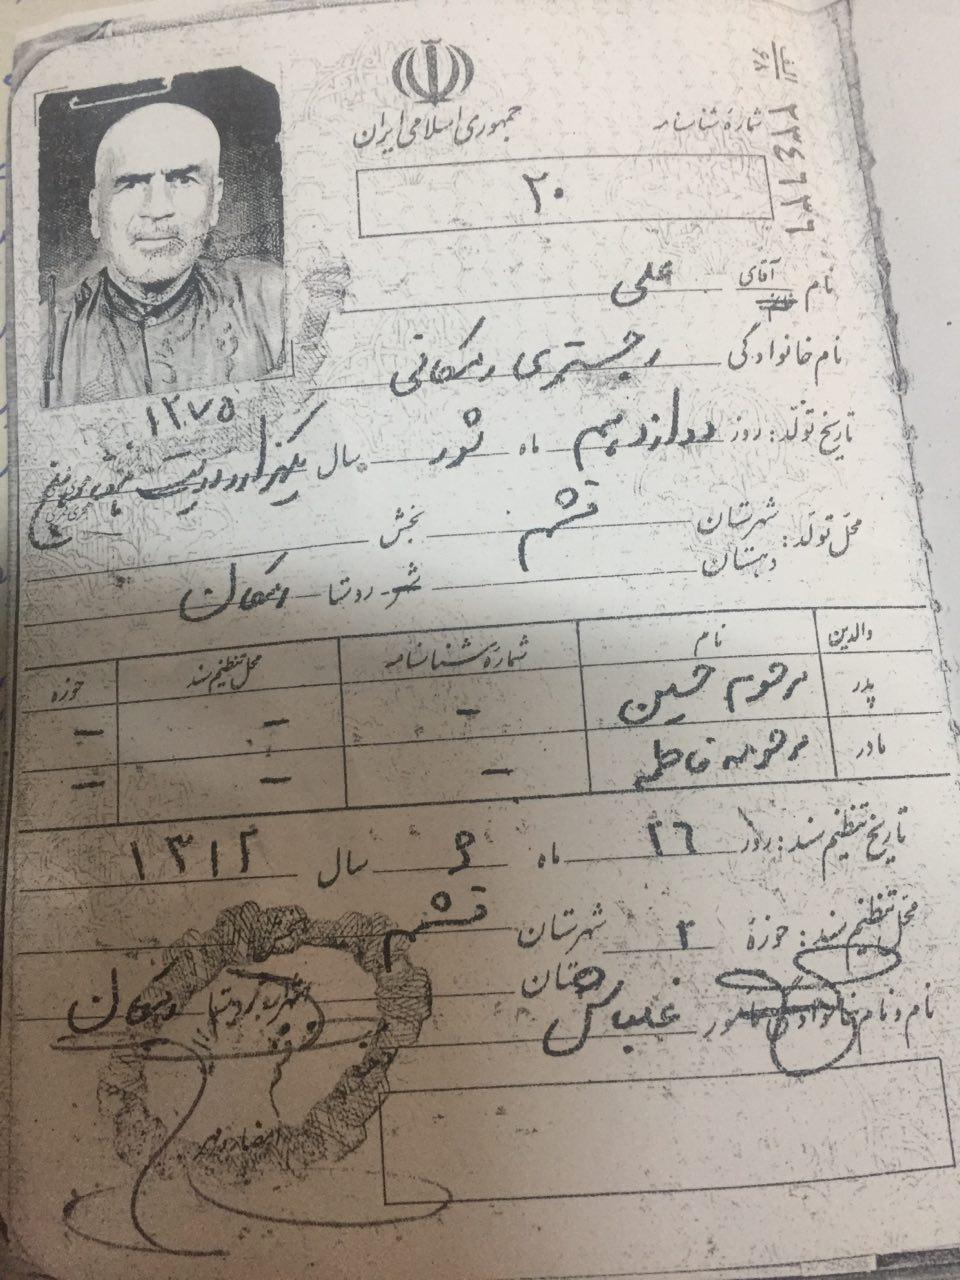 جمهوری اسلامی ایران
شمارهٔ شناسنامه
۲۰
نام آقای علی
نام خانوادگی رجستری رمکانی
۱۲۷۵
تاریخ تولد: روز دوازدهم ماه ثور سال یکهزار و دویست
محل تولد: شهرستان قشم بخش
دهستان شهر روستا رمکان
والدین نام شمارهٔ شناسنامه محل تنظیم سند حوزه
پدر مرحوم حسین - - -
مادر مرحومه فاطمه - - -
تاریخ تنظیم سند: روز ۲۶ ماه ۶ سال ۱۳۱۲
محل تنظیم سند: حوزهٔ ۲ شهرستان قشم
رمکان
نام و نام خانوادگی مأمور
امضاء و مهر